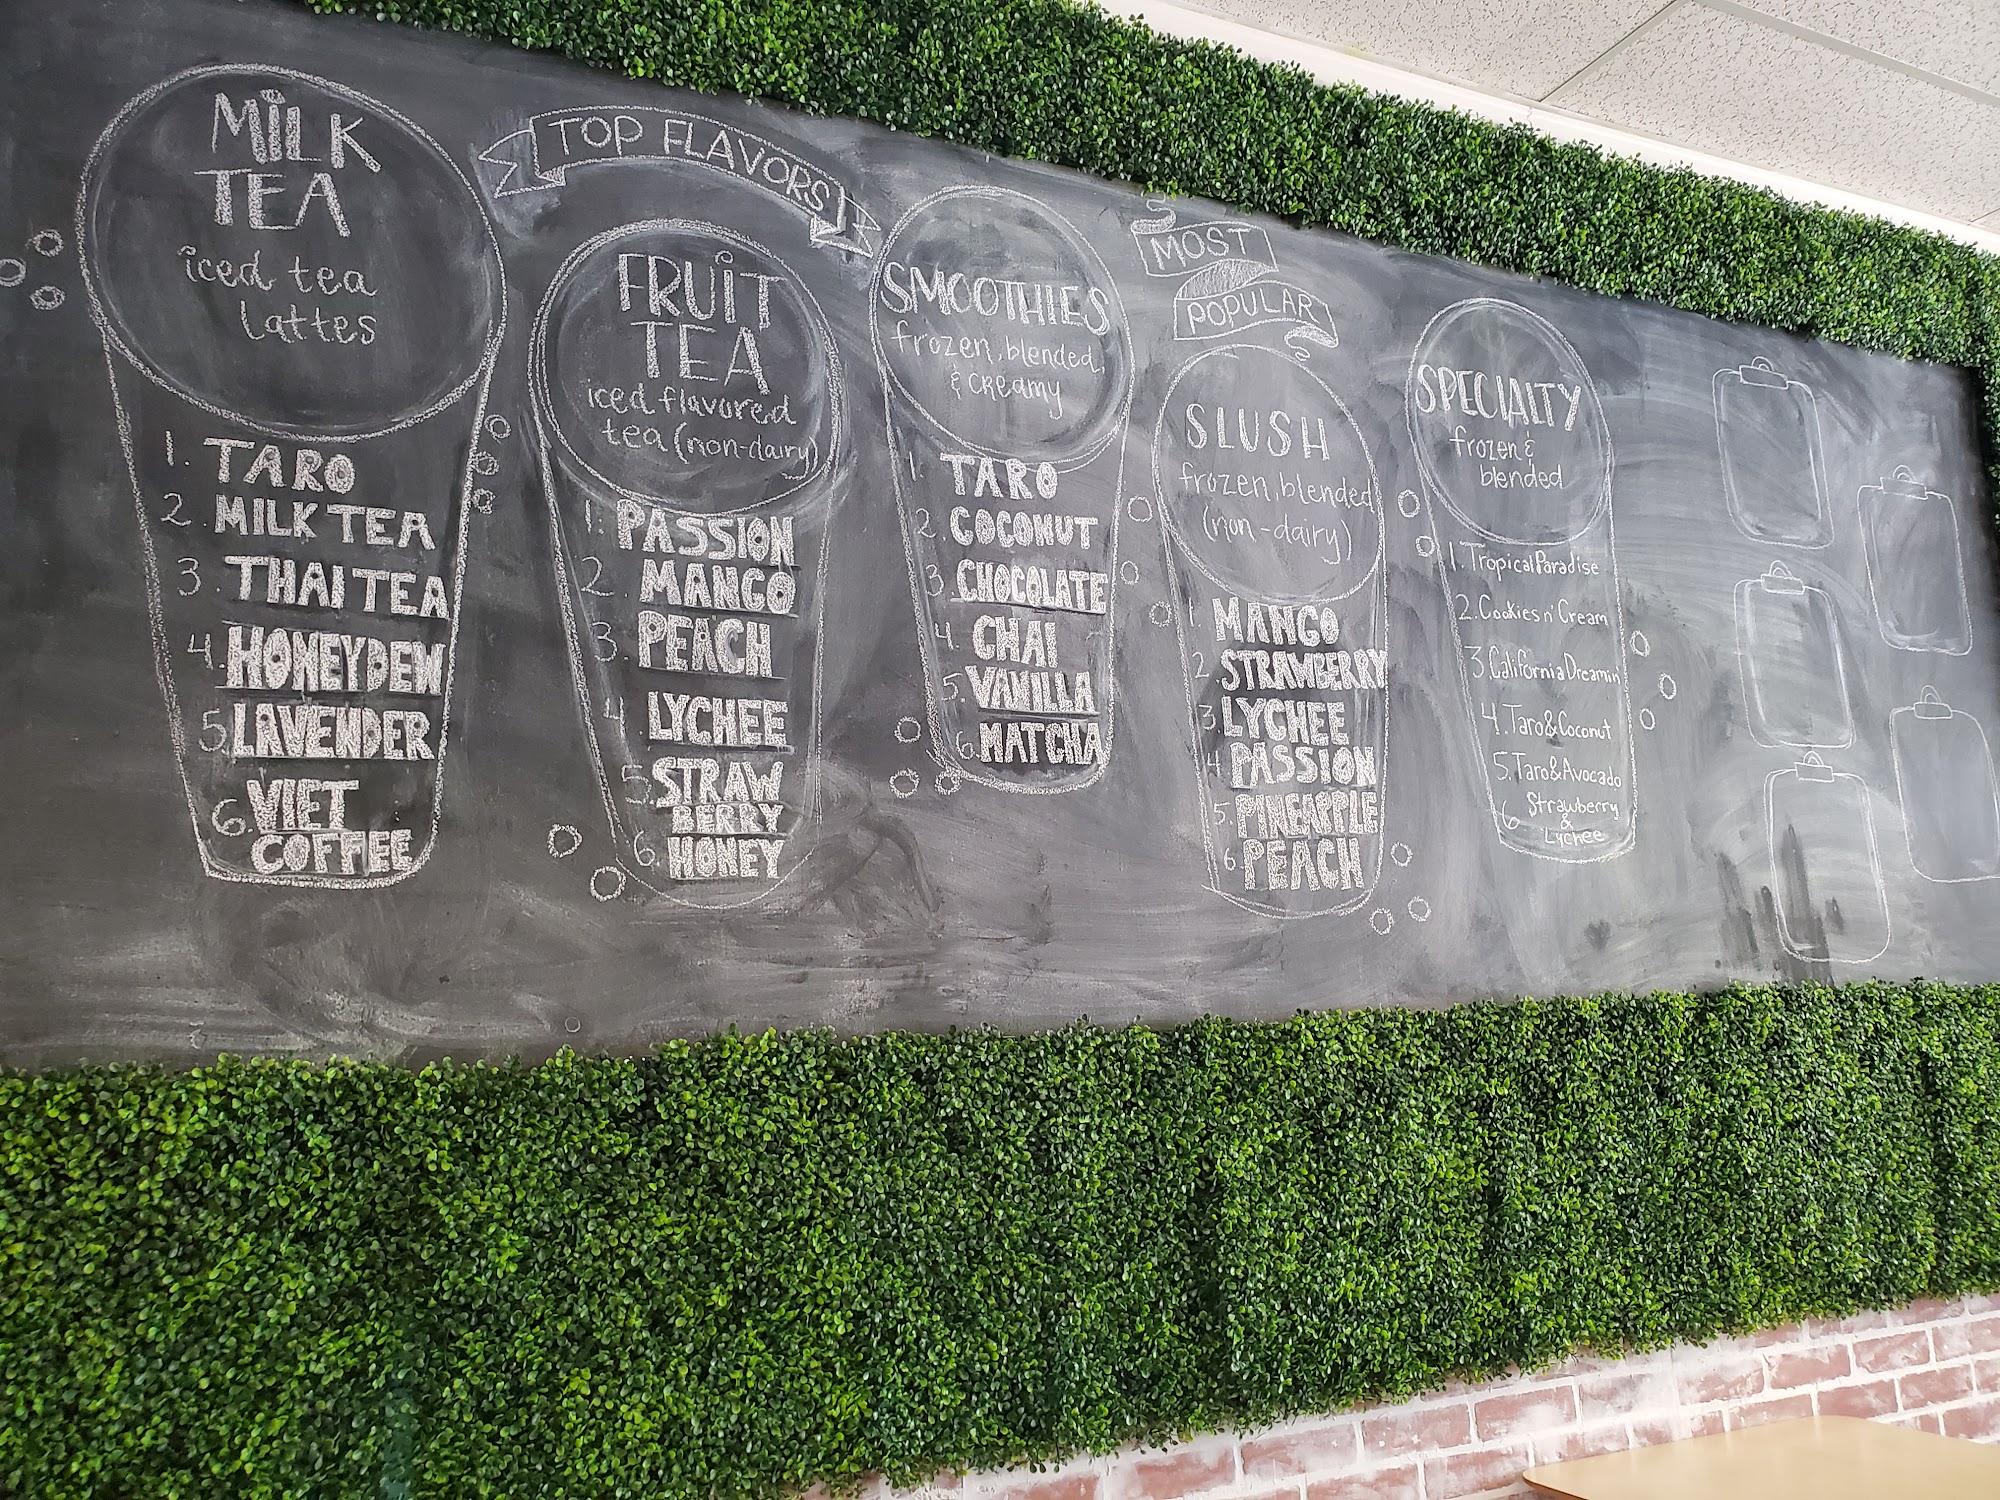 MILK
TEA
iced tea
lattes
1. TARO
2. MILK TEA
3. THAI TEA
4. HONEYDEW
5. LAVENDER
6. VIET
COFFEE
TOP FLAVORS
FRUIT
TEA
iced flavored
tea (non-dairy)
1. PASSION
2. MANGO
3. PEACH
4. LYCHEE
5. STRAW
BERRY
6. HONEY
SMOOTHIES
frozen, blended,
& creamy
1. TARO
2. COCONUT
3. CHOCOLATE
4. CHAI
5. VANILLA
6. MATCHA
MOST
POPULAR
SLUSH
frozen, blended
(non-dairy)
1. MANGO
2. STRAWBERRY
3. LYCHEE
4. PASSION
5. PINEAPPLE
6. PEACH
SPECIALTY
frozen &
blended
1. Tropical Paradise
2. Cookies n' Cream
3. California Dreamin'
4. Taro & Coconut
5. Taro & Avocado
6 Strawberry
&
Lychee